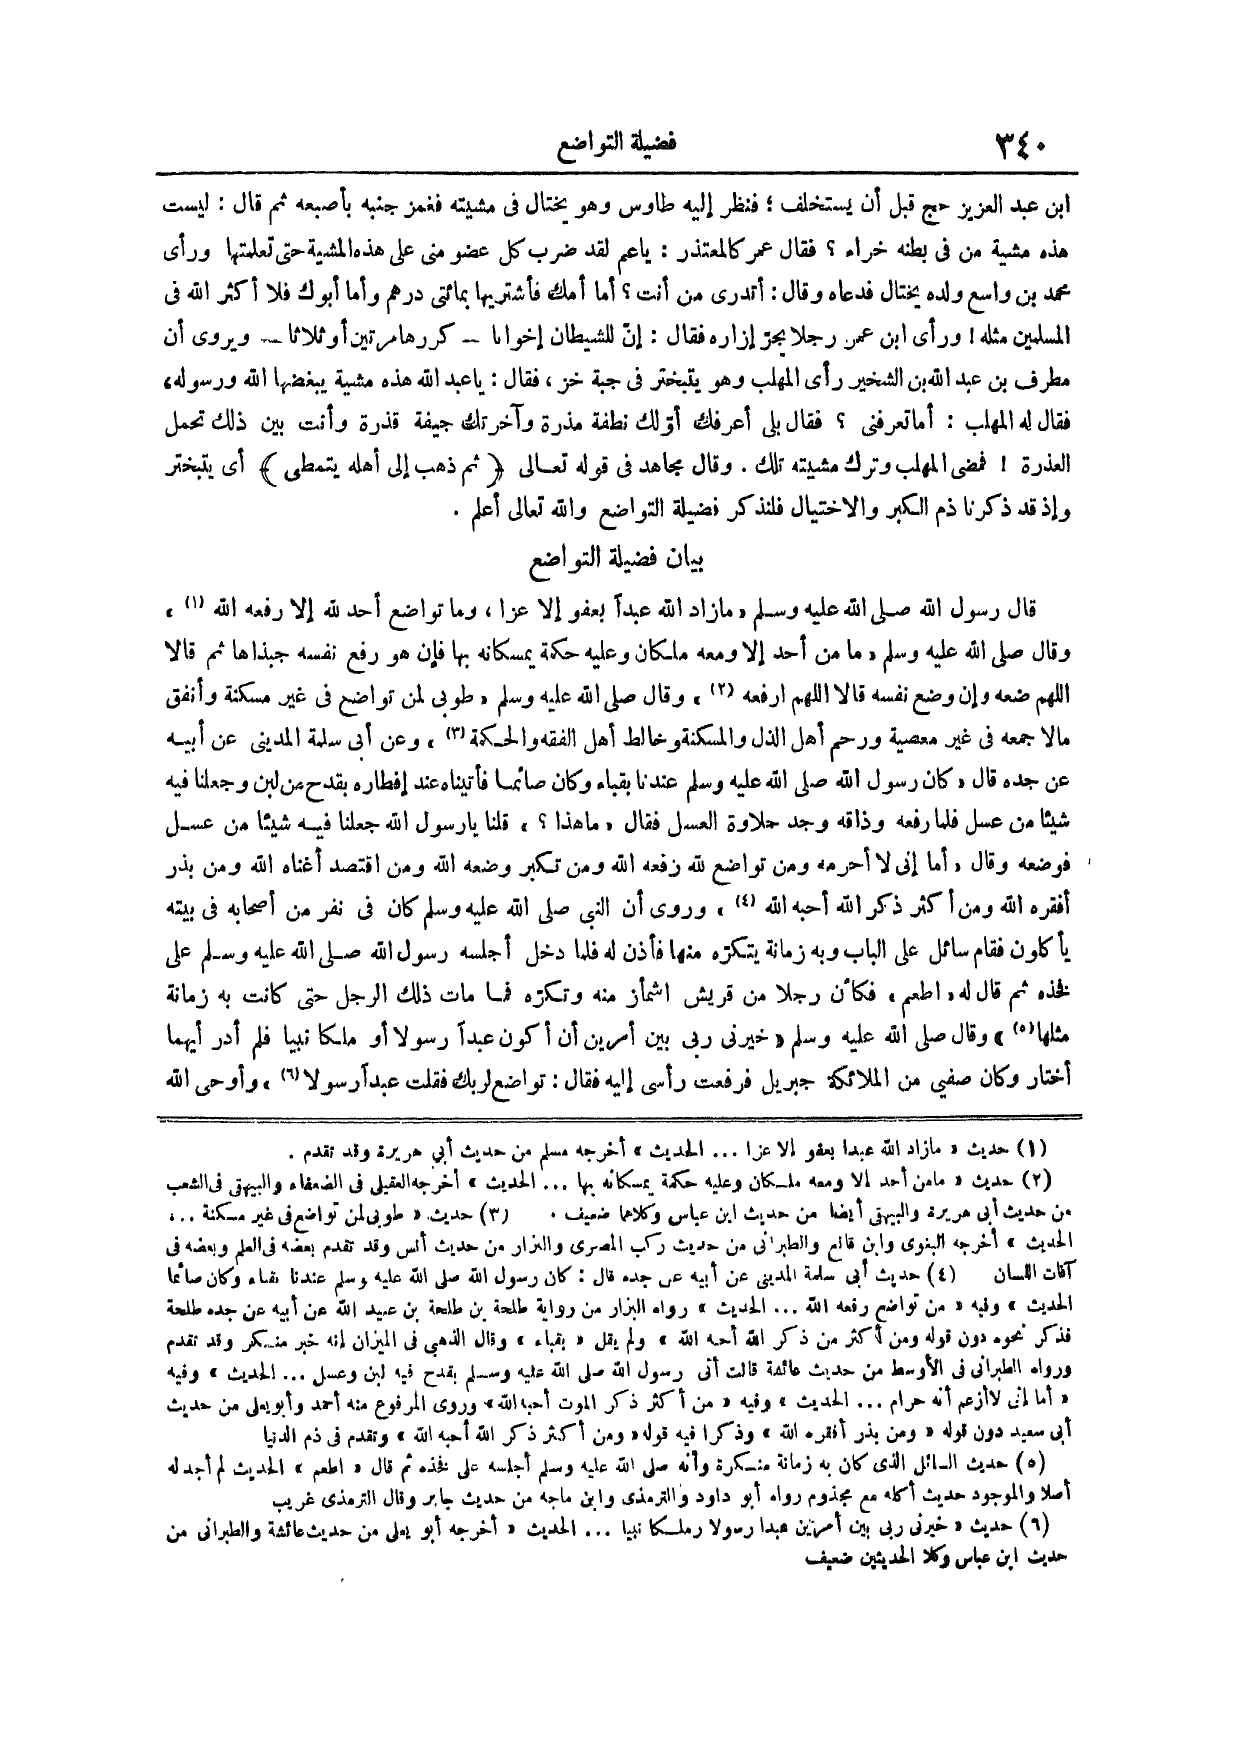 ٣٤٠
فضيلة التواضع
ابن عبد العزيز حج قبل أن يستخلف ؛ فنظر إليه طاوس وهو يختال فى مشيته فغمز جنبه بأصبعه ثم قال : ليست
هذه مشية من فى بطنه خراء ؟ فقال عمر كالمعتذر : ياعم لقد ضرب كل عضو منى على هذه المشية حتى تعلمتها ورأى
محمد بن واسع ولده يختال فدعاه وقال : أتدرى من أنت ؟ أما أمك فأشتريها بمائتى درهم وأما أبوك فلا أكثر الله فى
المسلمين مثله ! ورأى ابن عمر رجلا يجرّ إزاره فقال : إنّ للشيطان إخوانا — كررها مرتين أو ثلاثا — ويروى أن
مطرف بن عبد الله بن الشخير رأى المهلب وهو يتبختر فى جبة خز ، فقال : ياعبد الله هذه مشية يبغضها الله ورسوله،
فقال له المهلب : أماتعرفنى ؟ فقال بلى أعرفك أوّلك نطفة مذرة وآخرتك جيفة قذرة وأنت بين ذلك تحمل
العذرة ! فمضى المهلب وترك مشيته تلك . وقال مجاهد فى قوله تعالى ﴿ ثم ذهب إلى أهله يتمطى ﴾ أى يتبختر
وإذ قد ذكرنا ذم الكبر والاختيال فلنذكر فضيلة التواضع والله تعالى أعلم .
بيان فضيلة التواضع
قال رسول الله صلى الله عليه وسلم « مازاد الله عبداً بعفو إلا عزا ، وما تواضع أحد لله إلا رفعه الله (١) »
وقال صلى الله عليه وسلم « ما من أحد إلا ومعه ملكان وعليه حكمة يمسكانه بها فإن هو رفع نفسه جبذاها ثم قالا
اللهم ضعه وإن وضع نفسه قالا اللهم ارفعه (٢) » وقال صلى الله عليه وسلم « طوبى لمن تواضع فى غير مسكنة وأنفق
مالا جمعه فى غير معصية ورحم أهل الذل والمسكنة وخالط أهل الفقه والحكمة (٣) » وعن أبى سلمة المدينى عن أبيه
عن جده قال « كان رسول الله صلى الله عليه وسلم عندنا بقباء وكان صائما فأتيناه عند إفطاره بقدح من لبن وجعلنا فيه
شيئا من عسل فلما رفعه وذاقه وجد حلاوة العسل فقال « ماهذا ؟ » قلنا يارسول الله جعلنا فيه شيئا من عسل
فوضعه وقال « أما إنى لا أحرمه ومن تواضع لله رفعه الله ومن تكبر وضعه الله ومن اقتصد أغناه الله ومن بذر
أفقره الله ومن أكثر ذكر الله أحبه الله (٤) » وروى أن النبى صلى الله عليه وسلم كان فى نفر من أصحابه فى بيته
يأكلون فقام سائل على الباب وبه زمانة يتكرّه منها فأذن له فلما دخل أجلسه رسول الله صلى الله عليه وسلم على
فخذه ثم قال له « اطعم » فكأن رجلا من قريش اشمأز منه وتكرّه فما مات ذلك الرجل حتى كانت به زمانة
مثلها (٥) » وقال صلى الله عليه وسلم « خيرنى ربى بين أمرين أن أكون عبداً رسولا أو ملكا نبيا فلم أدر أيهما
أختار وكان صفي من الملائكة جبريل فرفعت رأسى إليه فقال : تواضع لربك فقلت عبداً رسولا (٦) » وأوحى الله
(١) حديث « مازاد الله عبدا بعفو إلا عزا ... الحديث » أخرجه مسلم من حديث أبي هريرة وقد تقدم .
(٢) حديث « مامن أحد إلا ومعه ملكان وعليه حكمة يمسكانه بها ... الحديث » أخرجه العقيلى فى الضعفاء والبيهقى فى الشعب
من حديث أبى هريرة والبيهقى أيضا من حديث ابن عباس وكلاهما ضعيف . (٣) حديث « طوبى لمن تواضع فى غير مسكنة ...
الحديث » أخرجه البغوى وابن قانع والطبرانى من حديث ركب المصرى والبزار من حديث أنس وقد تقدم بعضه فى العلم وبعضه فى
آفات اللسان (٤) حديث أبى سلمة المدينى عن أبيه عن جده قال : كان رسول الله صلى الله عليه وسلم عندنا بقباء وكان صائما
الحديث » وفيه « من تواضع رفعه الله ... الحديث » رواه البزار من رواية طلحة بن طلحة بن عبيد الله عن أبيه عن جده طلحة
فذكر نحوه دون قوله ومن أكثر من ذكر الله أحبه الله » ولم يقل « بقباء » وقال الذهبى فى الميزان إنه خبر منكر وقد تقدم
ورواه الطبرانى فى الأوسط من حديث عائشة قالت أتى رسول الله صلى الله عليه وسلم بقدح فيه لبن وعسل ... الحديث » وفيه
« أما إنى لاأزعم أنه حرام ... الحديث » وفيه « من أكثر ذكر الموت أحبه الله » وروى المرفوع منه أحمد وأبو يعلى من حديث
أبى سعيد دون قوله « ومن بذر أفقره الله » وذكرا فيه قوله « ومن أكثر ذكر الله أحبه الله » وتقدم فى ذم الدنيا
(٥) حديث السائل الذى كان به زمانة منكرة وأنه صلى الله عليه وسلم أجلسه على فخذه ثم قال « اطعم » الحديث لم أجد له
أصلا والموجود حديث أكله مع مجذوم رواه أبو داود والترمذى وابن ماجه من حديث جابر وقال الترمذى غريب
(٦) حديث « خيرنى ربى بين أمرين عبدا رسولا وملكا نبيا ... الحديث « أخرجه أبو يعلى من حديث عائشة والطبرانى من
حديث ابن عباس وكلا الحديثين ضعيف